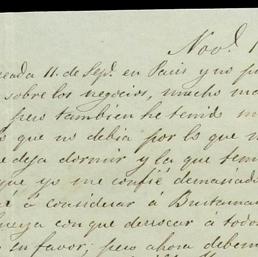 Nov.l 1
eada 11. de Sep.l en Paris y no p
sobre los negocios, mucho ma
pero tambien he tenido m
que no debia por lo que m
deja dormir y la que tem
que yo me confié demasiad
é a considerar a Bustaman
ueya con que derrocar á todo
su favor; pero ahora debem